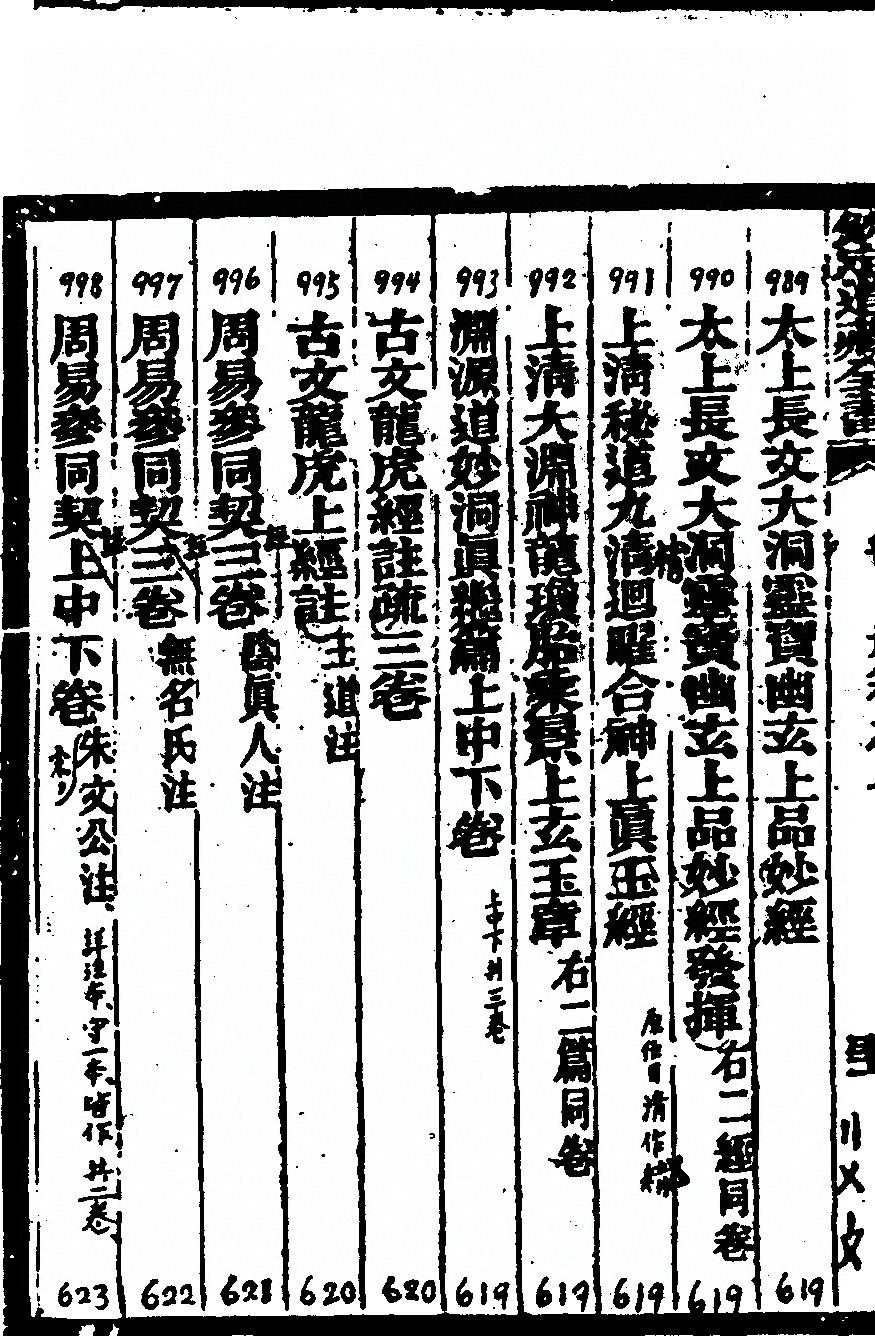 989 太上長文大洞靈寶幽玄上品妙經 619
990 太上長文大洞靈寶幽玄上品妙經發揮 右二經同卷 619
991 上清秘道九清迴曜合神上眞玉經 619
992 上清大淵神龍瓊胎乘景上玄玉章 右二篇同卷 619
993 淵源道妙洞眞繼篇上中下卷 上中下共三卷 619
994 古文龍虎經註疏三卷 620
995 古文龍虎上經註 王道注 620
996 周易參同契三卷 陰眞人注 621
997 周易參同契三卷 無名氏注 622
998 周易參同契上中下卷 朱文公注 詳注本、守一本、皆作 共三卷 623